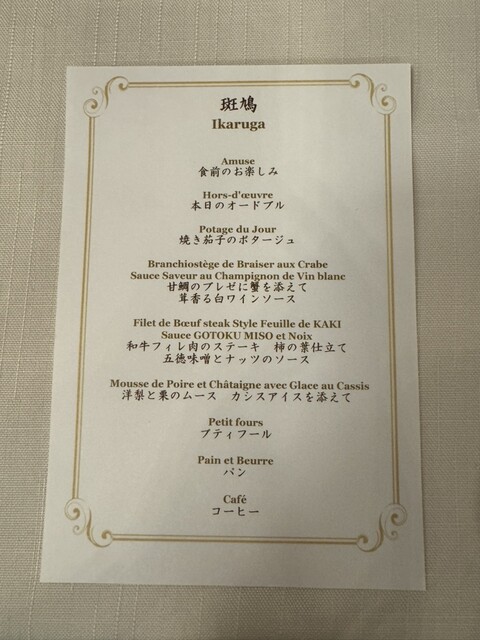 斑鳩
Ikaruga
Amuse
食前のお楽しみ
Hors-d'œuvre
本日のオードブル
Potage du Jour
焼き茄子のポタージュ
Branchiostège de Braiser aux Crabe
Sauce Saveur au Champignon de Vin blanc
甘鯛のブレゼに蟹を添えて
茸香る白ワインソース
Filet de Bœuf steak Style Feuille de KAKI
Sauce GOTOKU MISO et Noix
和牛フィレ肉のステーキ　柿の葉仕立て
五徳味噌とナッツのソース
Mousse de Poire et Châtaigne avec Glace au Cassis
洋梨と栗のムース　カシスアイスを添えて
Petit fours
プティフール
Pain et Beurre
パン
Café
コーヒー